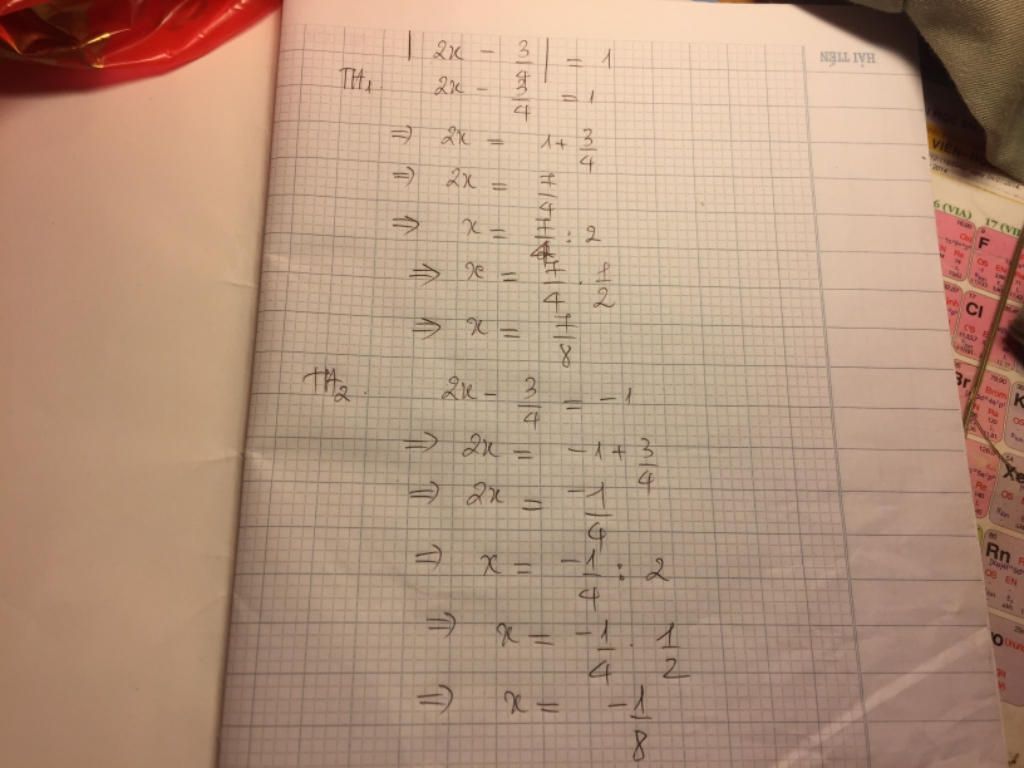 | 2x - 3/4 | = 1
TH1. 2x - 3/4 = 1
=> 2x = 1 + 3/4
=> 2x = 7/4
=> x = 7/4 : 2
=> x = 7/4 . 1/2
=> x = 7/8
TH2. 2x - 3/4 = -1
=> 2x = -1 + 3/4
=> 2x = -1/4
=> x = -1/4 : 2
=> x = -1/4 . 1/2
=> x = -1/8
HẢI TIẾN
6 (VIA)
F
Cl
Br
Xe
Rn